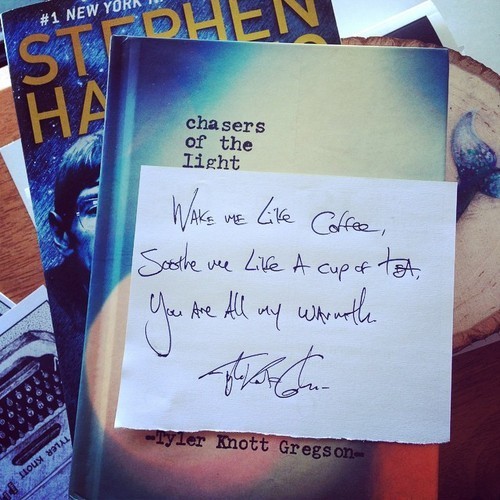 #1 NEW YORK
STEPHEN
HA
chasers
of the
light
Wake me Like Coffee,
Soothe me Like A cup of tea,
You Are All my warmth.
-Tyler Knott Gregson-
TYLER KNOTT